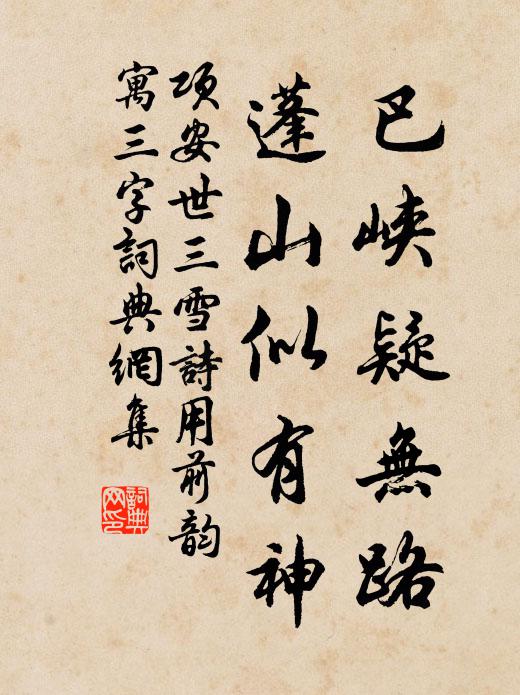 巴峽疑無路
蓬山似有神
項安世三雪詩用前韵
寓三字詞典網集
詞典
网印